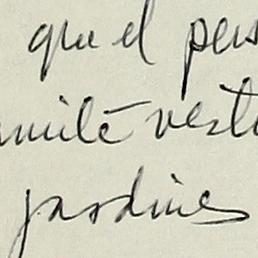 que el pers
amité vesti
jardines